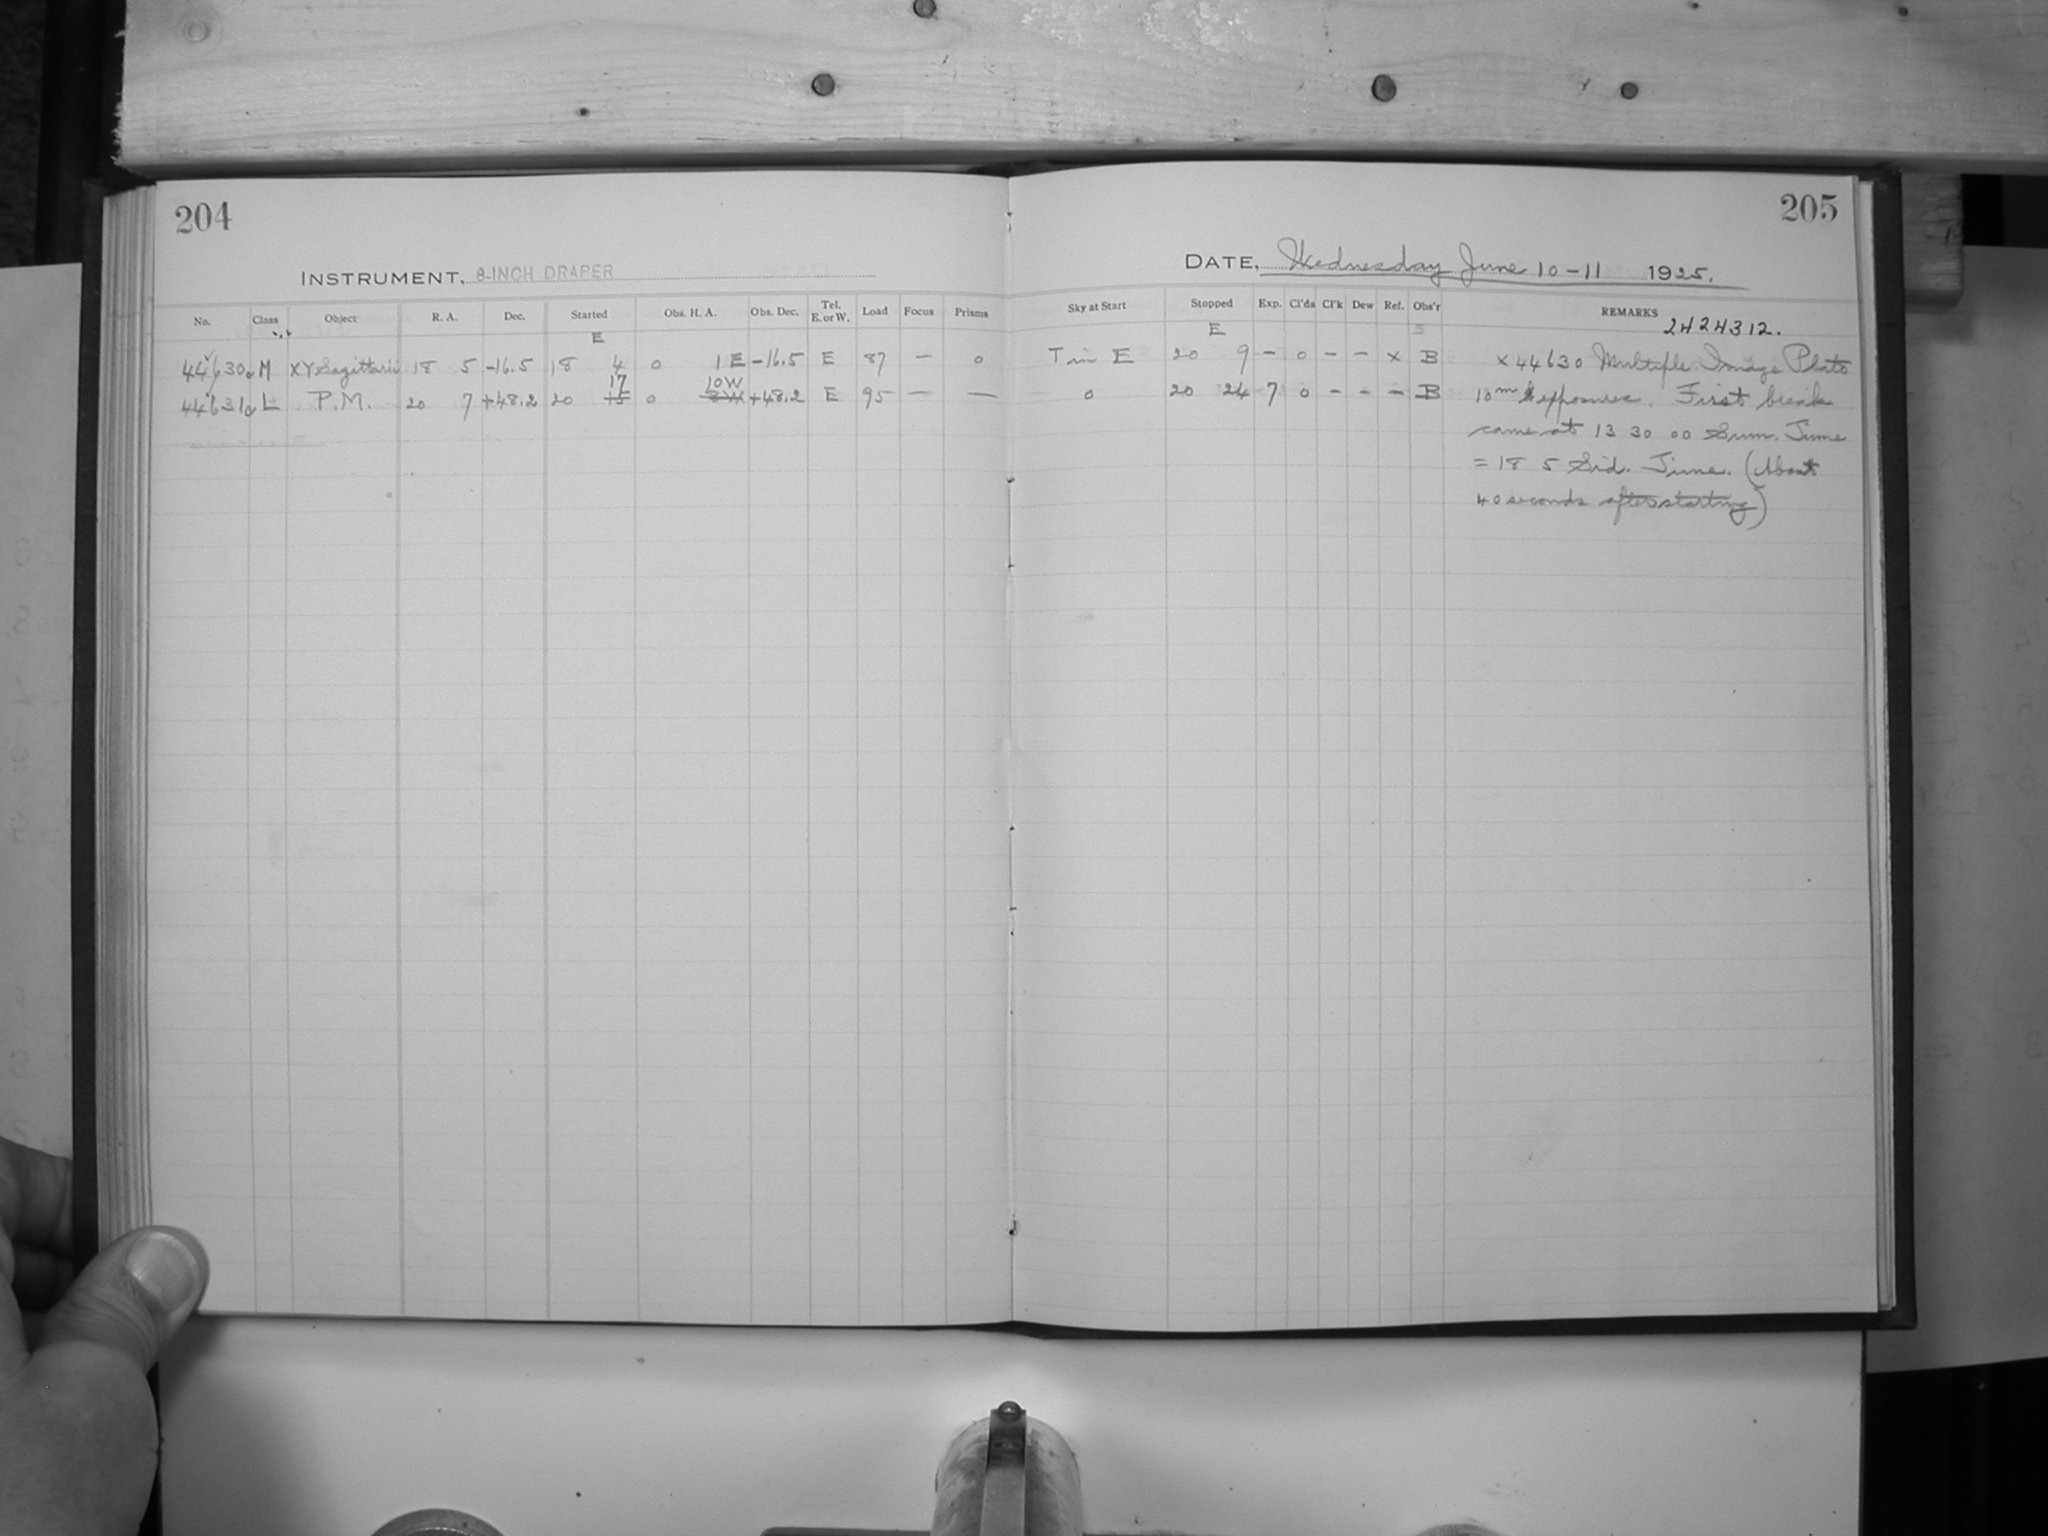 204
205
INSTRUMENT, 8-INCH DRAPER
DATE, Wednesday June 10-11 1925.
No. Class Object R. A. Dec. Started Obs. H. A. Obs. Dec. Tel. E. or W. Load Focus Prisms Sky at Start Stopped Exp. Cl'ds Cl'k Dew Ref. Obs'r REMARKS
E E 2424312.
44630 M XY Sagittarii 18 5 -16.5 18 4 0 1 E -16.5 E 87 — 0 T in E 20 9 - 0 - - x B x 44630 Multiple Image Plate
17 10W
44631 L P.M. 20 7 +48.2 20 15 0 8W +48.2 E 95 — — 0 20 24 7 0 - - - B 10m exposures. First break
came at 13 30 00 Sum. Time
= 18 5 Sid. Time. (About
40 seconds after starting)